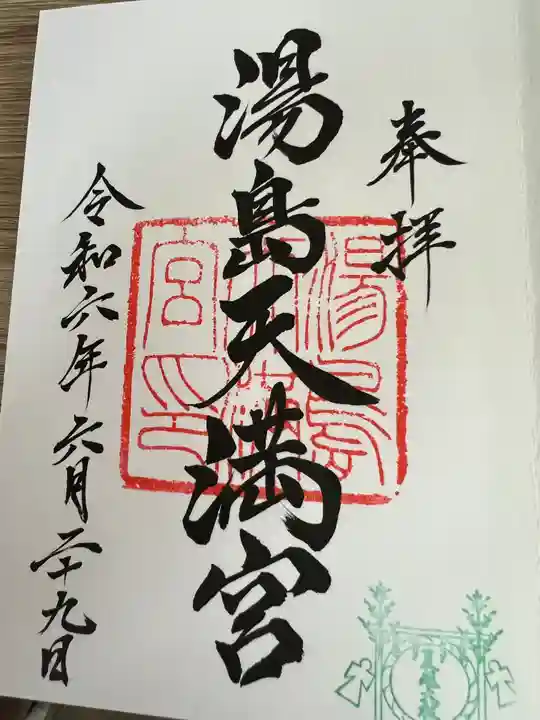 奉拝
湯島天満宮
令和六年六月二十九日
湯島
天満
宮印
夏越大祓